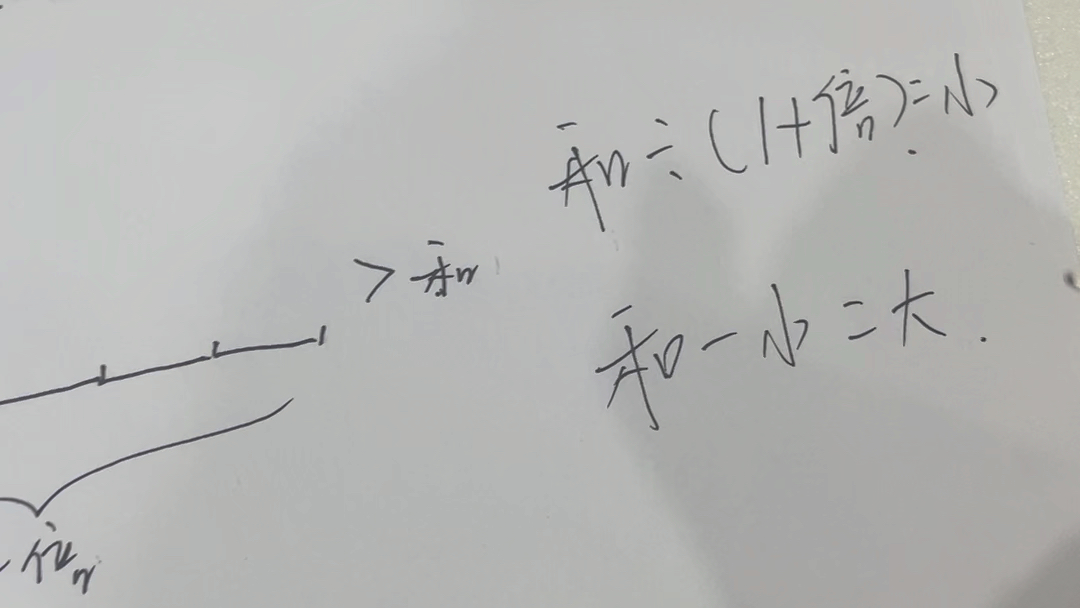 和÷(1+倍)=小
>和
和-小=大.
倍